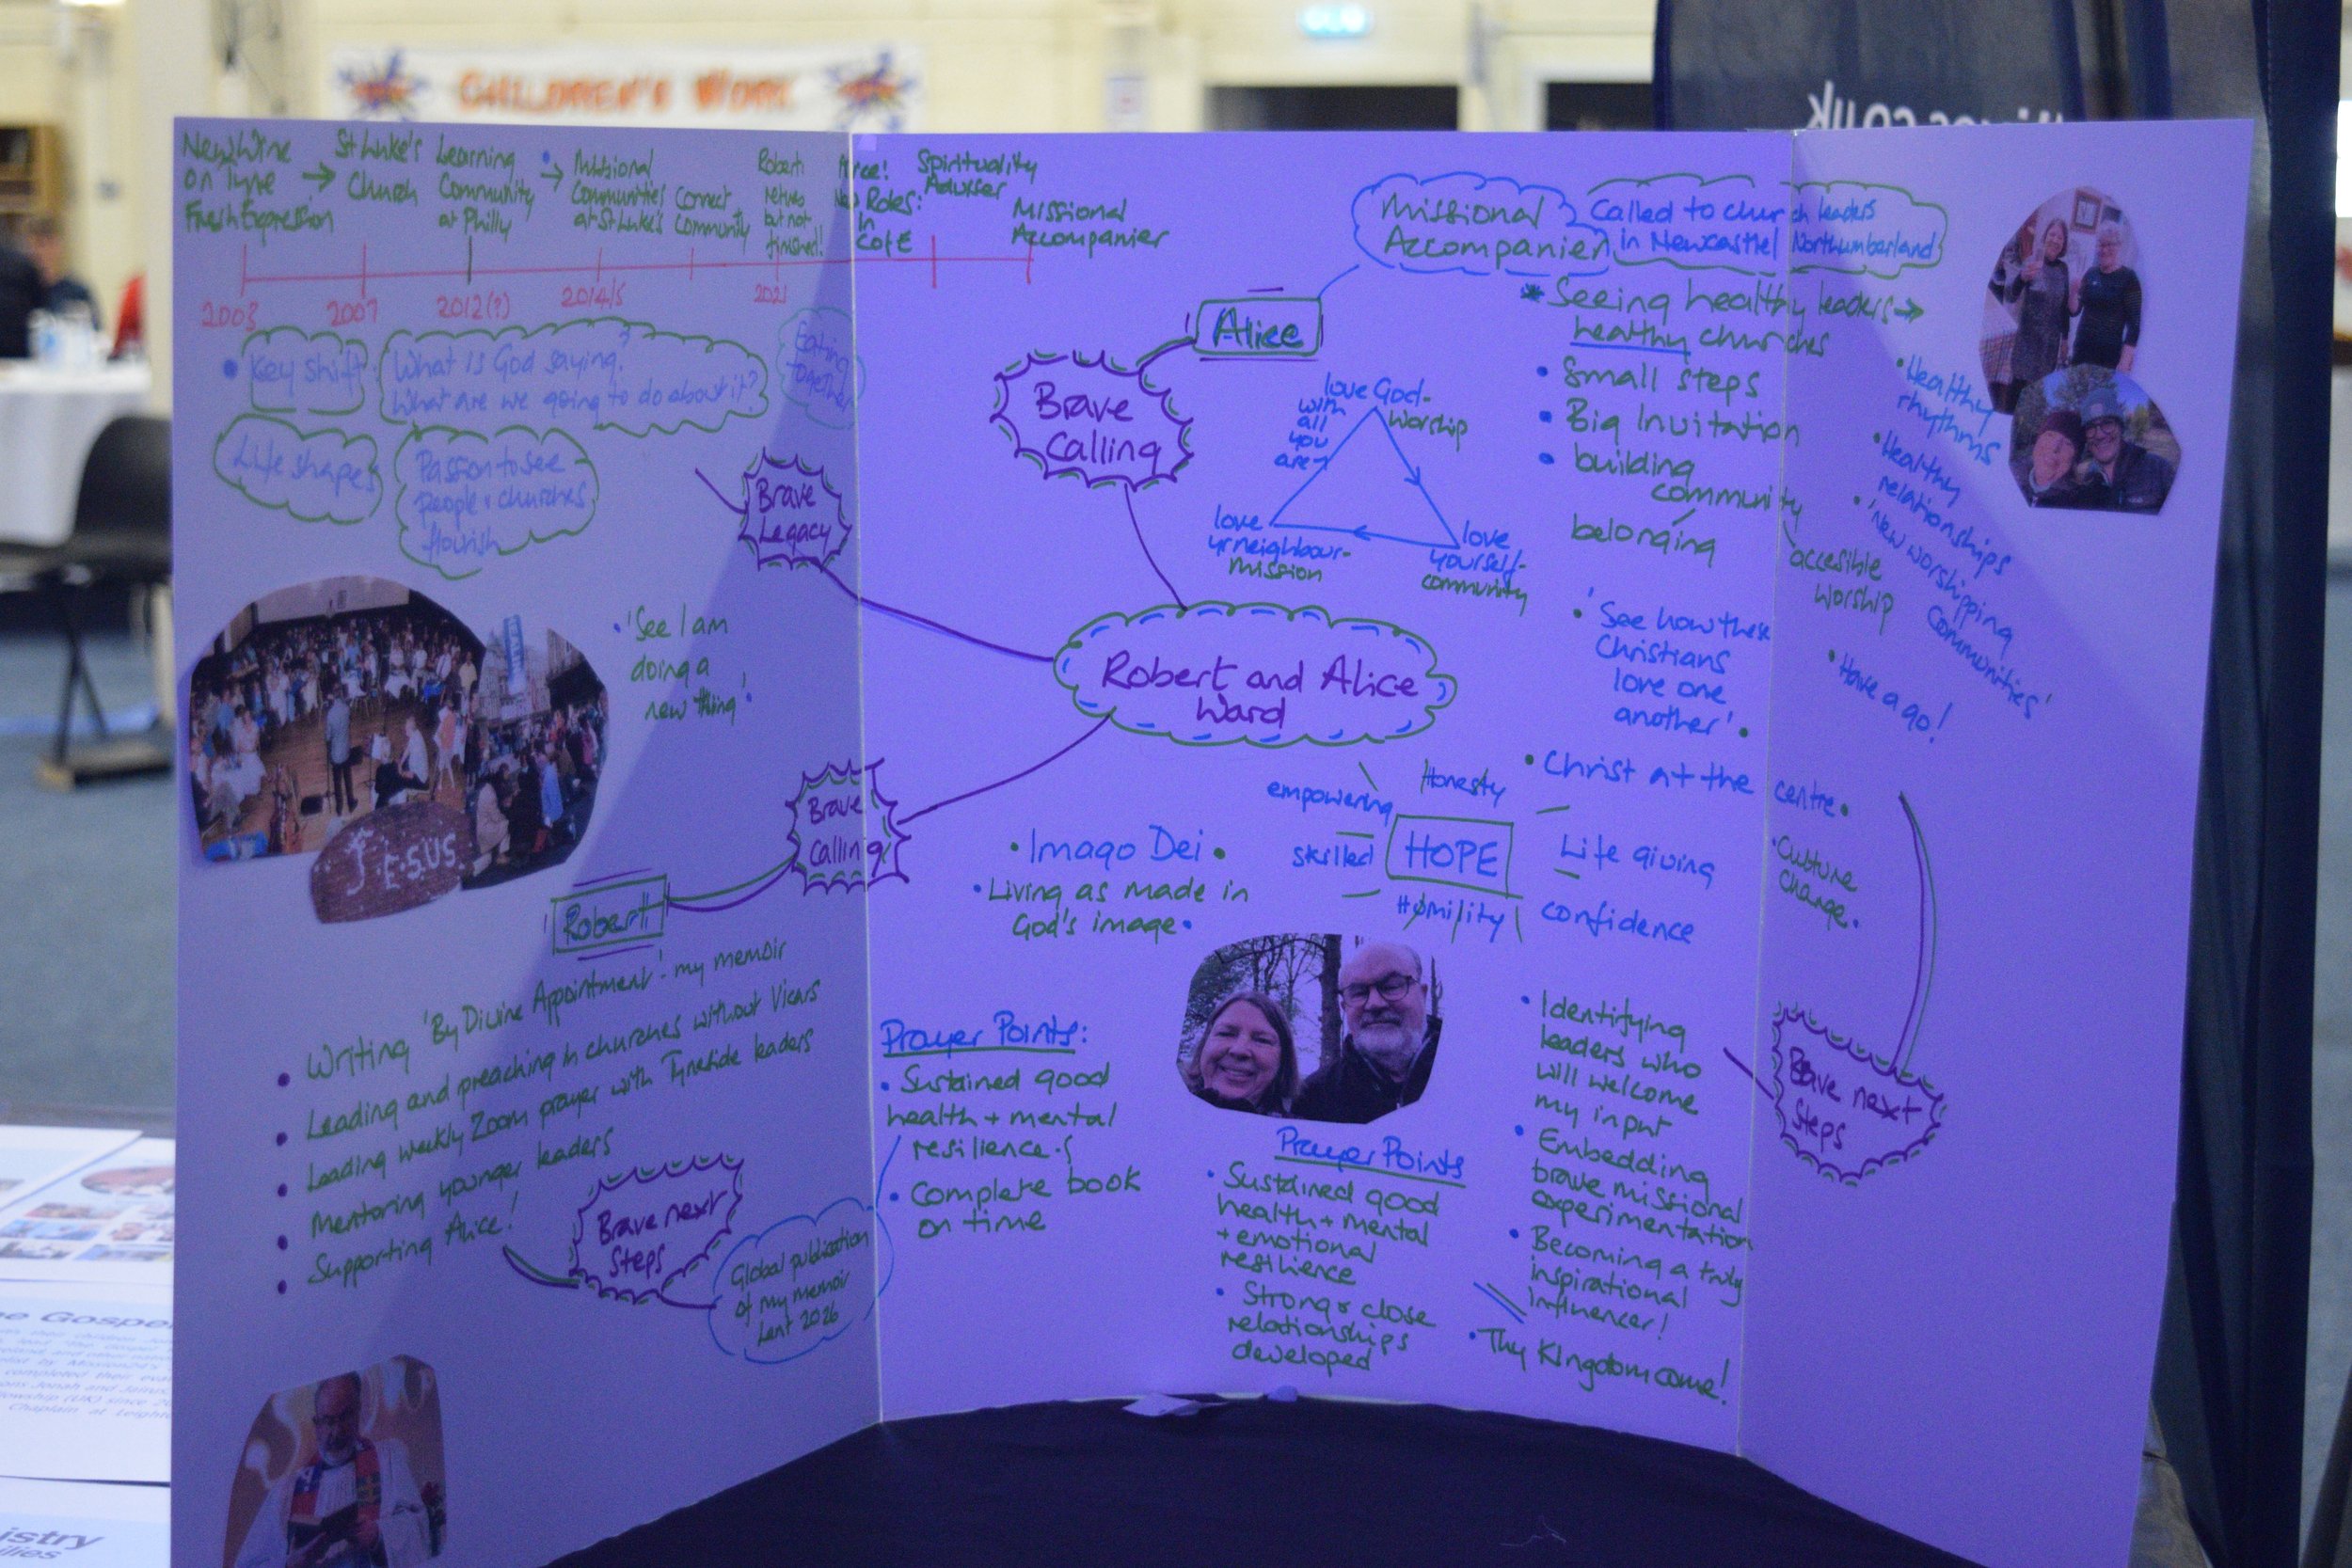 CHILDREN'S WORK
New Wine
on Tyne
Fresh Expression
→
St Luke's
Church
Learning
Community
at Philly
→
Missional
Communities
at St Luke's
Connect
Community
Robert
Retires
but not
finished!
New Roles:
in
CofE
Spirituality
Adviser
Missional
Accompanier
2003
2007
2012(?)
2014/5
2021
• Key shift:
What is God saying?
What are we going to do about it?
Eating
together
Life shapes
Passion to see
People & churches
flourish
Brave
Legacy
• 'See I am
doing a
new thing'
JESUS
Robert and Alice
Ward
Brave
Calling
Alice
Missional
Accompanier
Called to church leaders
in Newcastel Northumberland
* Seeing healthy leaders →
healthy churches
• Small steps
• Big Invitation
• building
community
belonging
accesible
worship
• Healthy
rhythms
• Healthy
relationships
• 'New worshipping
Communities'
• Have a go!
love God-
worship
with
all
you
are
love
yr neighbour-
mission
love
yourself-
community
• 'See how these
Christians
love one
another'.
• Christ at the centre.
• Culture
change.
empowering
Honesty
skilled
HOPE
Life giving
Humility
confidence
• Imago Dei •
• Living as made in
God's image •
Brave
Calling
Robert
• Writing 'By Divine Appointment': my memoir
• Leading and preaching in churches without Vicars
• Leading weekly Zoom prayer with Tyneside leaders
• Mentoring younger leaders
• Supporting Alice!
Brave next
Steps
Global publication
of my memoir
Lent 2026
Prayer Points:
• Sustained good
health + mental
resilience.
• Complete book
on time
Prayer Points
• Sustained good
health + mental
+ emotional
resilience
• Strong & close
relationships
developed
• Identifying
leaders who
will welcome
my input
• Embedding
brave missional
experimentation
• Becoming a truly
inspirational
influencer!
• Thy Kingdom come!
Brave next
Steps